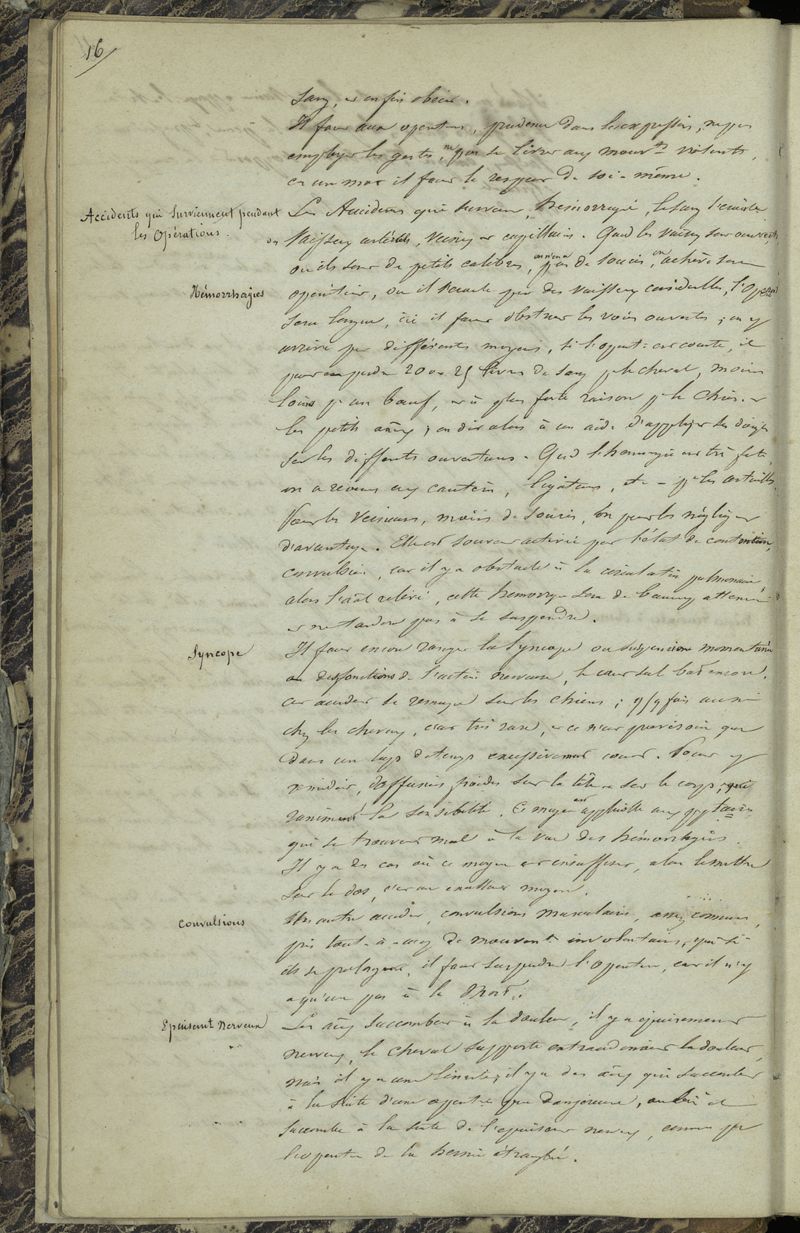 16
sang, et enfin obéir.
Il faut aux opérateurs, prudence dans les expressions, ne pas
employer les gestes, ne pas se livrer aux mouvts violents,
en un mot il faut le respect de soi-même.
Accidents qui Surviennent pendant
les Opérations.
Les Accidents qui survien, hémorragie, le sang s'écoule
Vaisseaux artériels, veineux et capillaires. Quand les vaisseaux sont ouverts,
ou ils sont de petits calibres, on n'en a pas de soucis, on achève son
Hémorrhagies
opération, ou il s'écoule par des vaisseaux considérables, l'opérat
sera longue, ici il faut obstruer les voies ouvertes ; on y
arrive par différents moyens, si l'opérat. est courte, il
peut en perdre 20 ou 25 livres de sang p. le cheval, moins
pour un bœuf, et à plus forte raison p. le chien et
les petits aux ; on dit alors à un aide d'appliquer les doigts
sur les différents ouvertures. Quand l'hémorragie est très forte
on a recours aux cautères, ligatures, etc - p. les artérielles
Pour les veineuses, moins de soucis, on peut les négliger
d'avantage. Elle est souvent activée par l'état de contention,
convulsion, car il y a obstacle à la circulation pulmonaire
alors l'aal relevé, cette hémorrag. sera de beaucoup atténuée
et ne tardera pas à se suspendre.
Syncope
Il faut encore ranger la Syncope ou suspension momentanée
des fonctions de l'action nerveuse, le cœur seul bat encore.
cet accident se remarque sur les chiens ; qq fois aussi
chez les chevaux, c'est très rare, et ce n'est
dans un laps de temps excessivement court. Pour y
remédier, d'affusions froides sur la tête et sur le corps, qui
raniment la sensibilité. Ce moyen est applicable aux
qui se trouvent mal à la vue des hémorrhagies.
Il y a des cas où ce moyen est insuffisant, alors les mettre
sur le dos, c'est un excellent moyen.
Convulsions
Un autre accident, convulsions musculaires, assez communes,
pris tout-à-coup de mouvent involontaires, qui si
ils se prolongent, il faut suspendre l'opération, car il n'y
a qu'un pas à la mort.
Epuisent Nerveux
Les aux succombent à la douleur, il y a épuisement
nerveux, le cheval supporte la douleur,
mais il y a une limite ; il y a des aux qui succombent
à la suite d'une opération peu dangereuse,
succombe à la suite de l'épuisent nerveux, comme par
l'opérat. de la hernie étranglée.